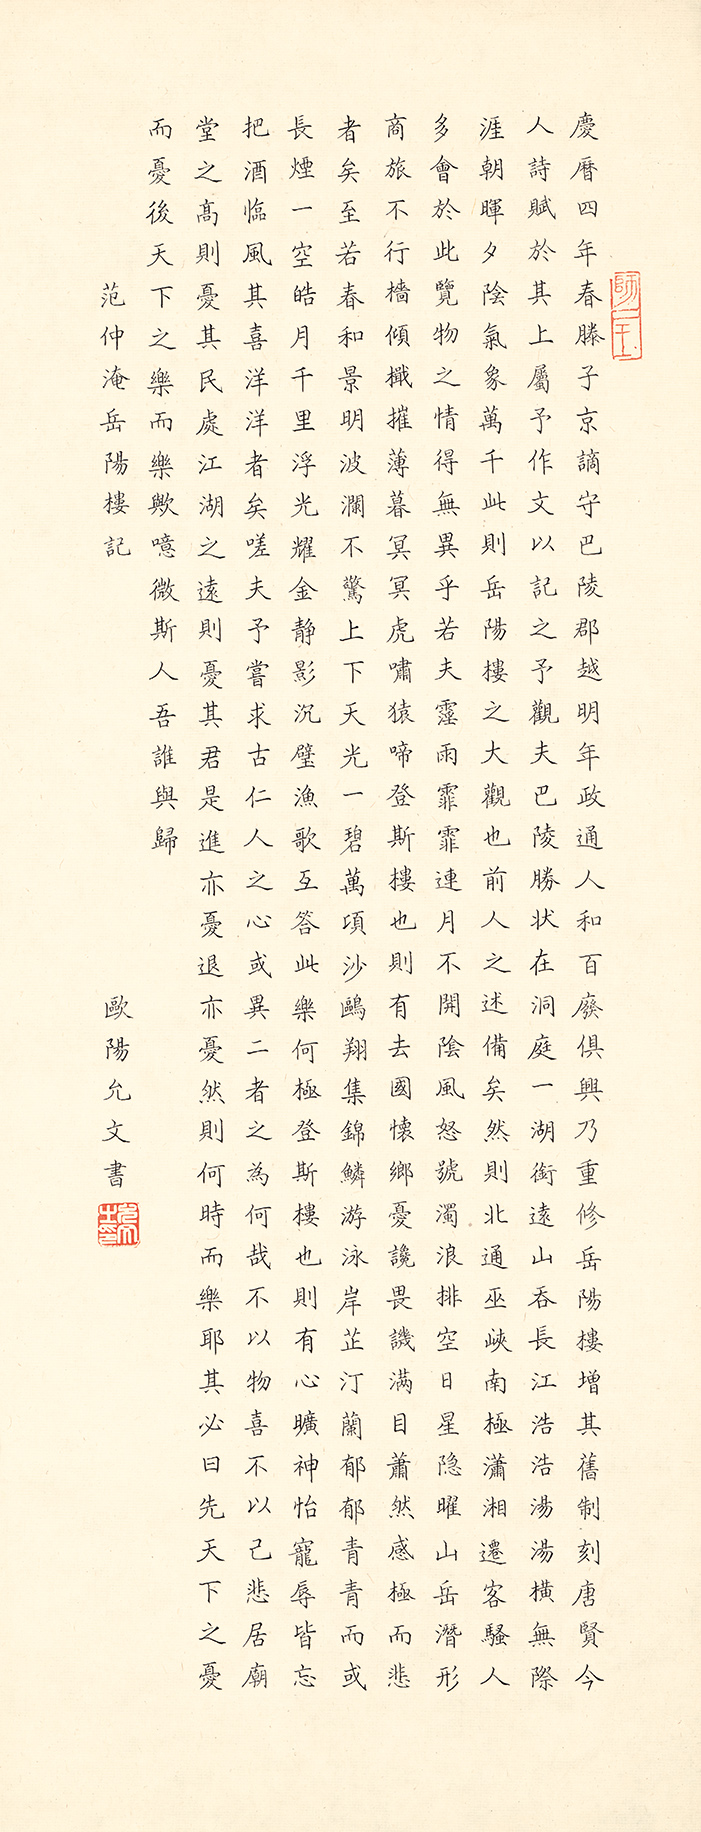 師二王
慶曆四年春滕子京謫守巴陵郡越明年政通人和百廢俱興乃重修岳陽樓增其舊制刻唐賢今
人詩賦於其上屬予作文以記之予觀夫巴陵勝狀在洞庭一湖銜遠山吞長江浩浩湯湯橫無際
涯朝暉夕陰氣象萬千此則岳陽樓之大觀也前人之述備矣然則北通巫峽南極瀟湘遷客騷人
多會於此覽物之情得無異乎若夫霪雨霏霏連月不開陰風怒號濁浪排空日星隱曜山岳潛形
商旅不行檣傾檝摧薄暮冥冥虎嘯猿啼登斯樓也則有去國懷鄉憂讒畏譏滿目蕭然感極而悲
者矣至若春和景明波瀾不驚上下天光一碧萬頃沙鷗翔集錦鱗游泳岸芷汀蘭郁郁青青而或
長煙一空皓月千里浮光耀金静影沉璧漁歌互答此樂何極登斯樓也則有心曠神怡寵辱皆忘
把酒臨風其喜洋洋者矣嗟夫予嘗求古仁人之心或異二者之為何哉不以物喜不以己悲居廟
堂之高則憂其民處江湖之遠則憂其君是進亦憂退亦憂然則何時而樂耶其必曰先天下之憂
而憂後天下之樂而樂歟噫微斯人吾誰與歸
范仲淹岳陽樓記
歐陽允文書